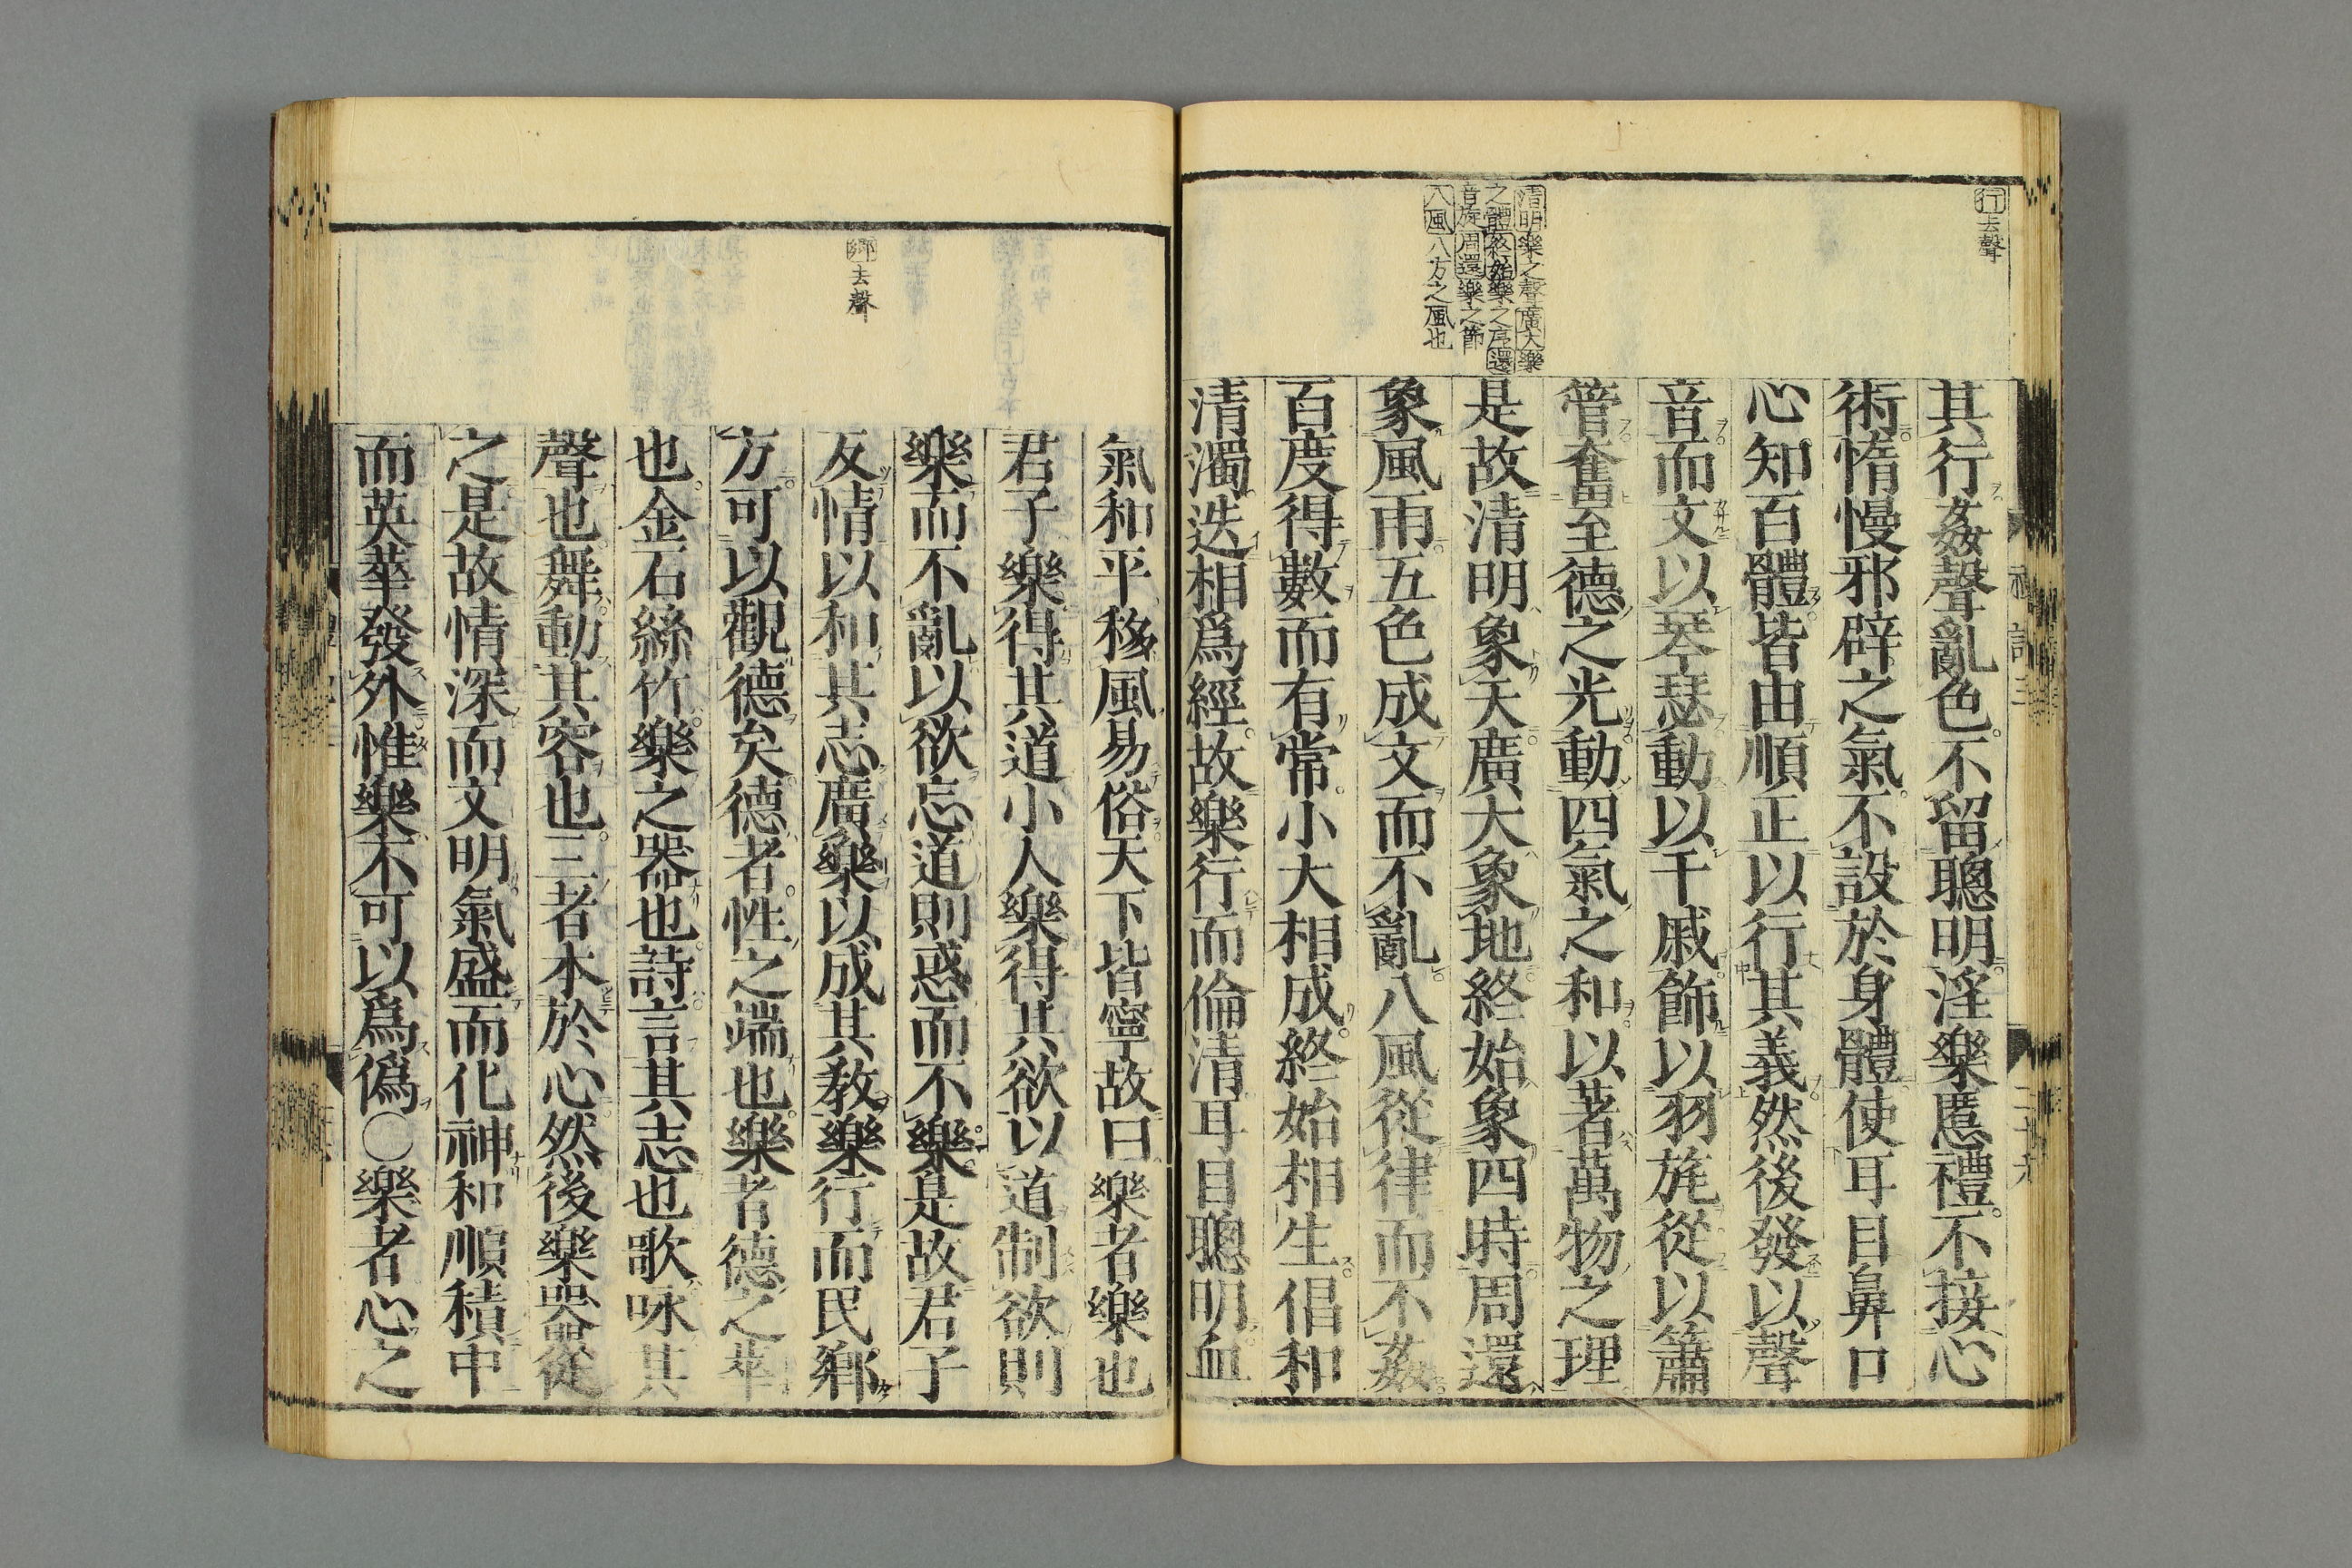 行去聲
清明樂之聲廣大樂
之體終始樂之序還
音旋周還樂之節
八風八方之風也
其行姦聲亂色不留聰明淫樂慝禮不接心
術惰慢邪辟之氣不設於身體使耳目鼻口
心知百體皆由順正以行其義然後發以聲
音而文以琴瑟動以干戚飾以羽旄從以簫
管奮至德之光動四氣之和以著萬物之理
是故清明象天廣大象地終始象四時周還
象風雨五色成文而不亂八風從律而不姦
百度得數而有常小大相成終始相生倡和
清濁迭相爲經故樂行而倫清耳目聰明血
鄉去聲
氣和平移風易俗天下皆寧故曰樂者樂也
君子樂得其道小人樂得其欲以道制欲則
樂而不亂以欲忘道則惑而不樂是故君子
反情以和其志廣樂以成其敎樂行而民鄉
方可以觀德矣德者性之端也樂者德之華
也金石絲竹樂之器也詩言其志也歌咏其
聲也舞動其容也三者本於心然後樂器從
之是故情深而文明氣盛而化神和順積中
而英華發外惟樂不可以爲僞〇樂者心之